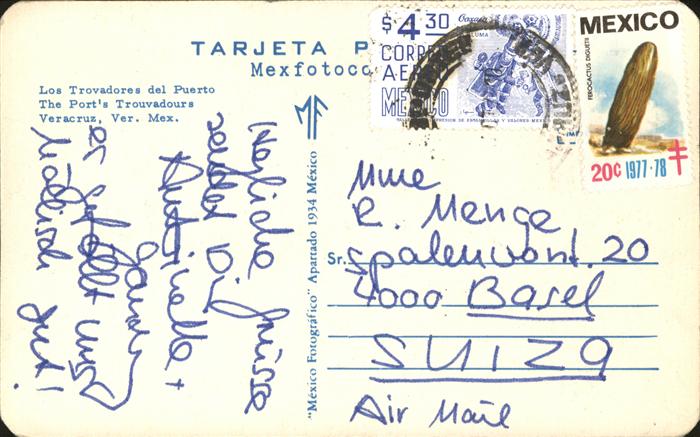 TARJETA P
Mexfotoco
Los Trovadores del Puerto
The Port's Trouvadours
Veracruz, Ver. Mex.
MF
"México Fotográfico" Apartado 1934 México
$4.30 Oaxaca
PLUMA
CORREO
AEREO
MEXICO
MEXICO
FEROCACTUS DIGUETII
20¢ 1977-78
Herzliche Grüsse
sendet Dir
+
Sandra
es gefällt uns
gut!
Mme
R. Menge
Sr. Spalenvorst. 20
4000 Basel
SUIZA
Air Mail